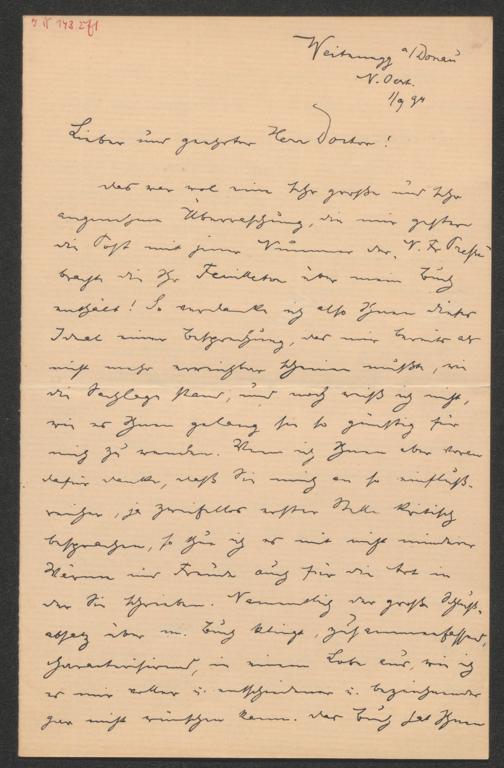 I. N 143.281
Weitenegg a/Donau
N. Oest.
1/9 94
Lieber und geehrter Herr Doctor!
Das war wol eine sehr große und sehr
angenehme Überraschung, die mir gestern
die Post mit jener Nummer der „N. Fr. Presse“
brachte die Ihr Feuilleton über mein Buch
enthält! So verdanke ich also Ihnen dieses
Ideal einer Besprechung, das mir bereits als
nicht mehr erreichbar scheinen mußte, wie
die Sachlage stand, und noch weiß ich nicht,
wie es Ihnen gelang sie so günstig für
mich zu wenden. Wenn ich Ihnen aber vorerst
dafür danke, daß Sie mich an so einfluß-
reicher, ja zweifellos erster Stelle kritisch
besprachen, so thue ich es mit nicht minderer
Wärme und Freude auch für die Art in
der Sie schrieben. Namentlich der große Schluß-
absatz über m. Buch klingt, zusammenfassend,
charakterisirend, in einem Lobe aus, wie ich
es mir voller u. entschiedener u. bezeichnender
gar nicht wünschen kann. Das Buch hat Ihnen